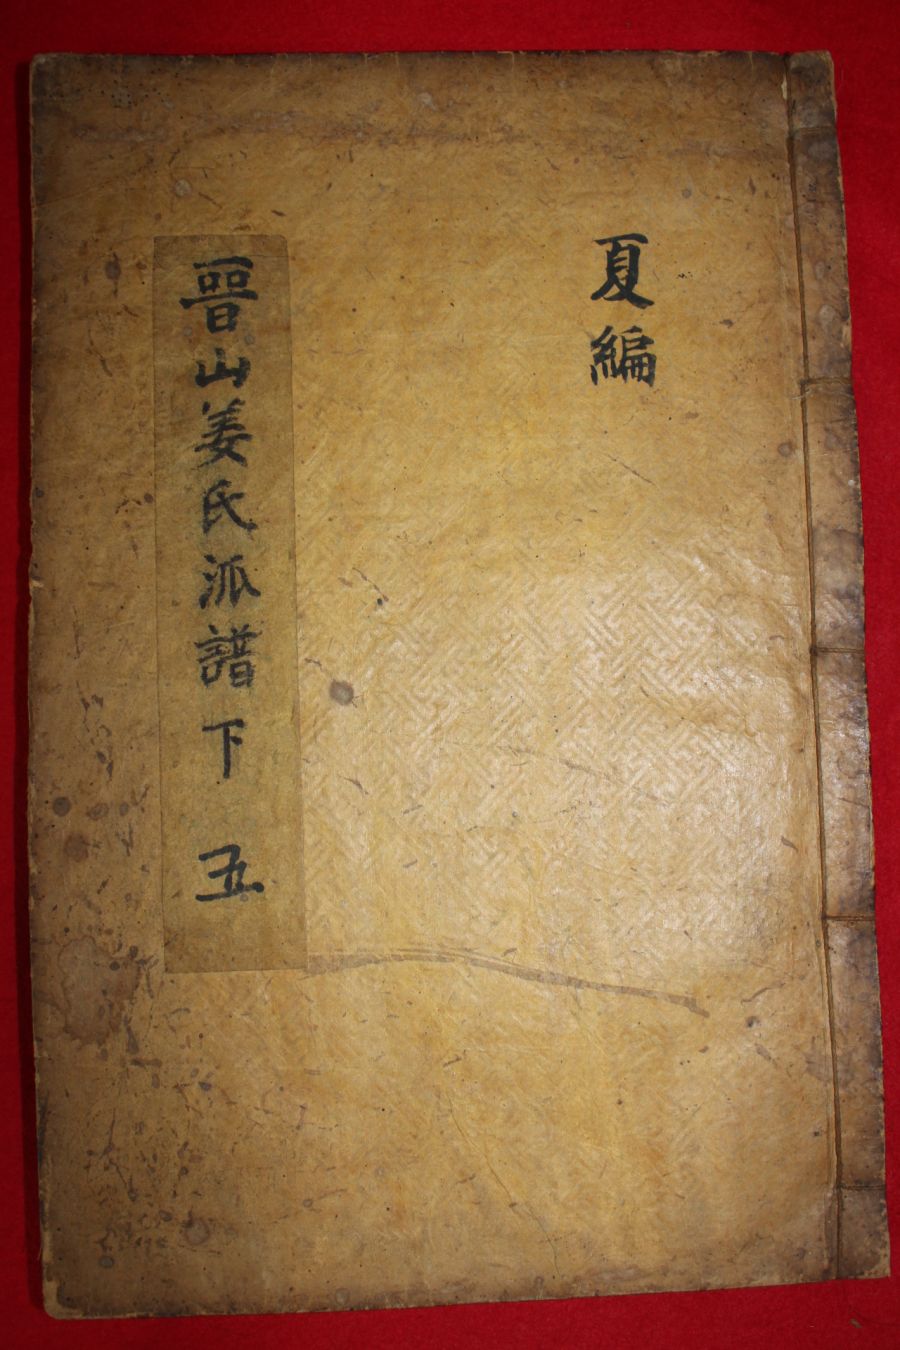 夏編
晉山姜氏派譜 下 五